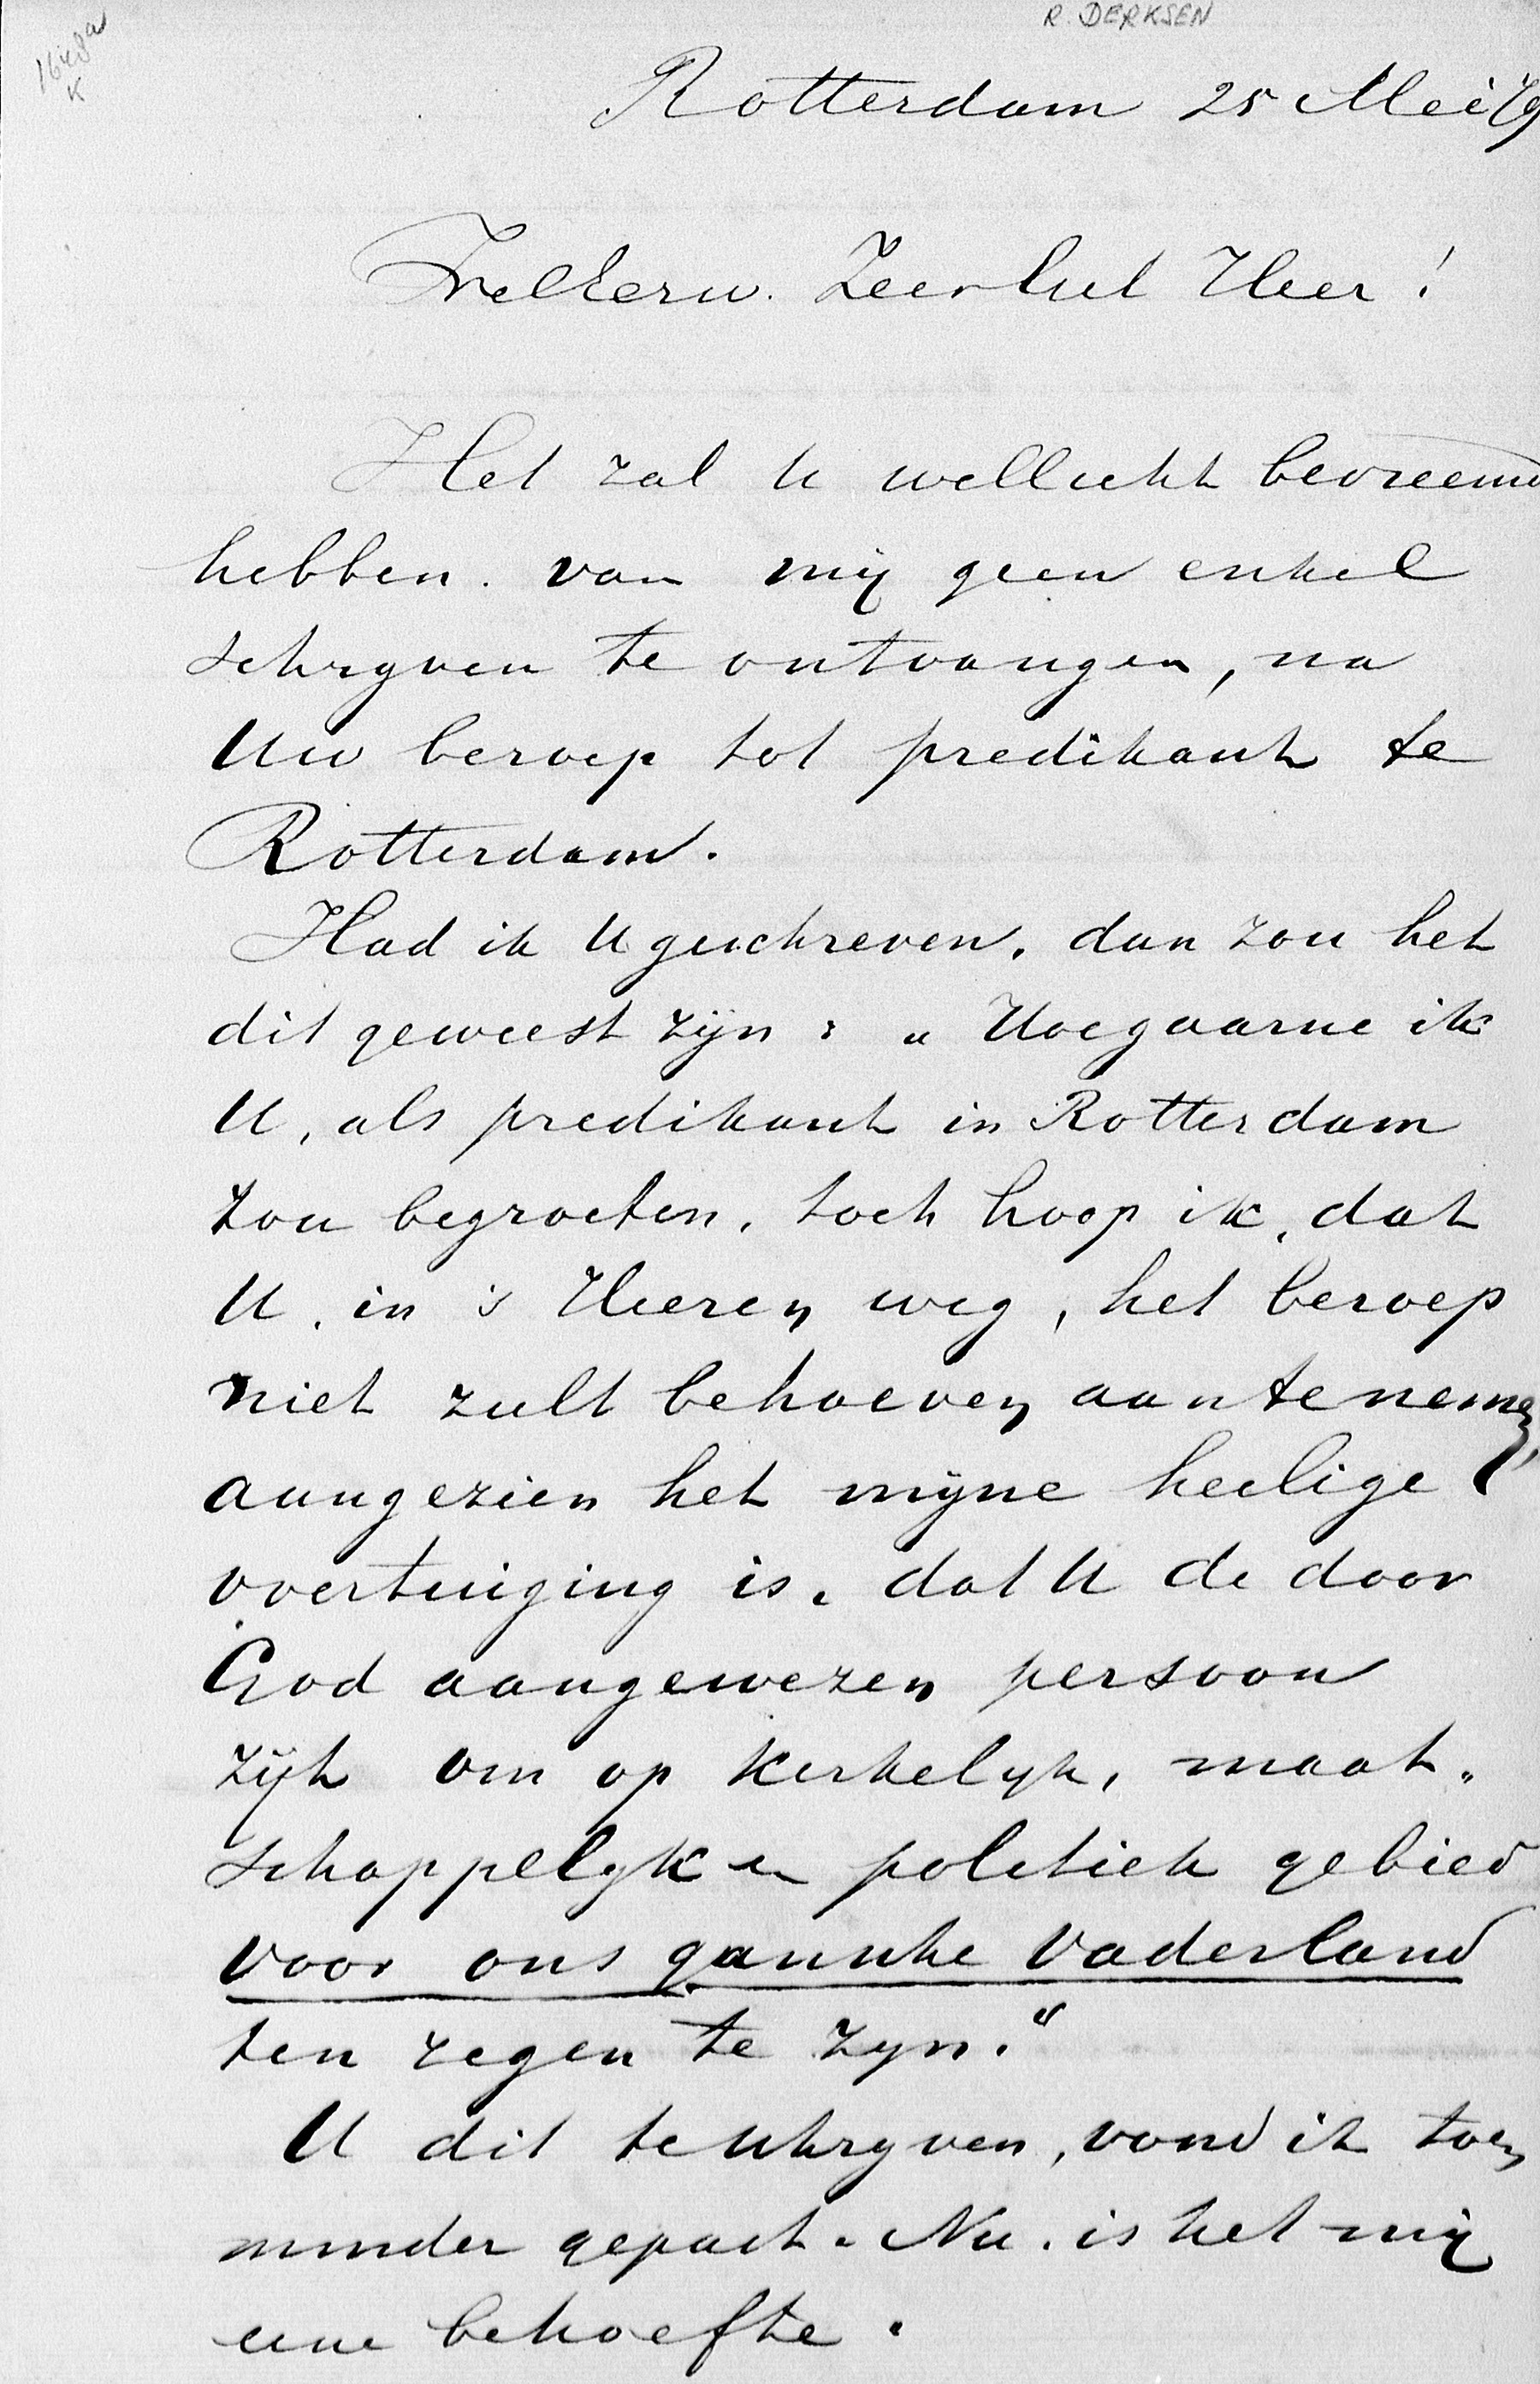 R. DERKSEN
1648a
K
Rotterdam 25 Mei 79
WelEerw. Zeergel Heer!
Het zal U wellicht bevreemd
hebben. van mij geen enkel
schrijven te ontvangen, na
Uw beroep tot predikant te
Rotterdam.
Had ik U geschreven. dan zou het
dit geweest zijn: „Hoegaarne ik
U, als predikant in Rotterdam
zou begroeten, toch hoop ik, dat
U. in 's Heeren weg, het beroep
niet zult behoeven aan te nemen,
aangezien het mijne heilige
overtuiging is, dat U de door
God aangewezen persoon
zijt om op Kerkelijk, maat„
schappelijk en politiek gebied
voor ons gansche Vaderland
ten zegen te zijn."
U dit te schrijven, vond ik toen
minder gepast. Nu. is het mij
eene behoefte.